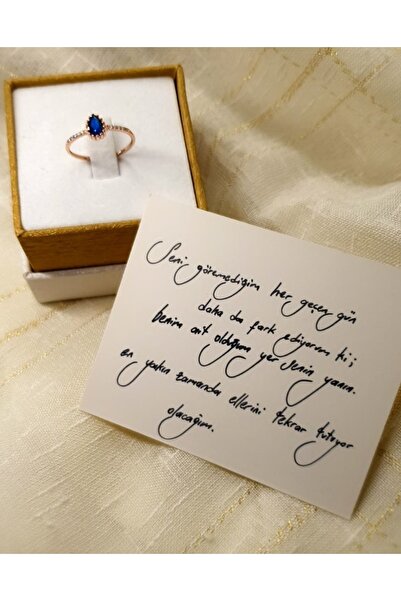 Seni göremediğim her geçen gün
daha da fark ediyorum ki;
benim ait olduğum yer senin yanın.
en yakın zamanda ellerini tekrar tutuyor
olacağım.